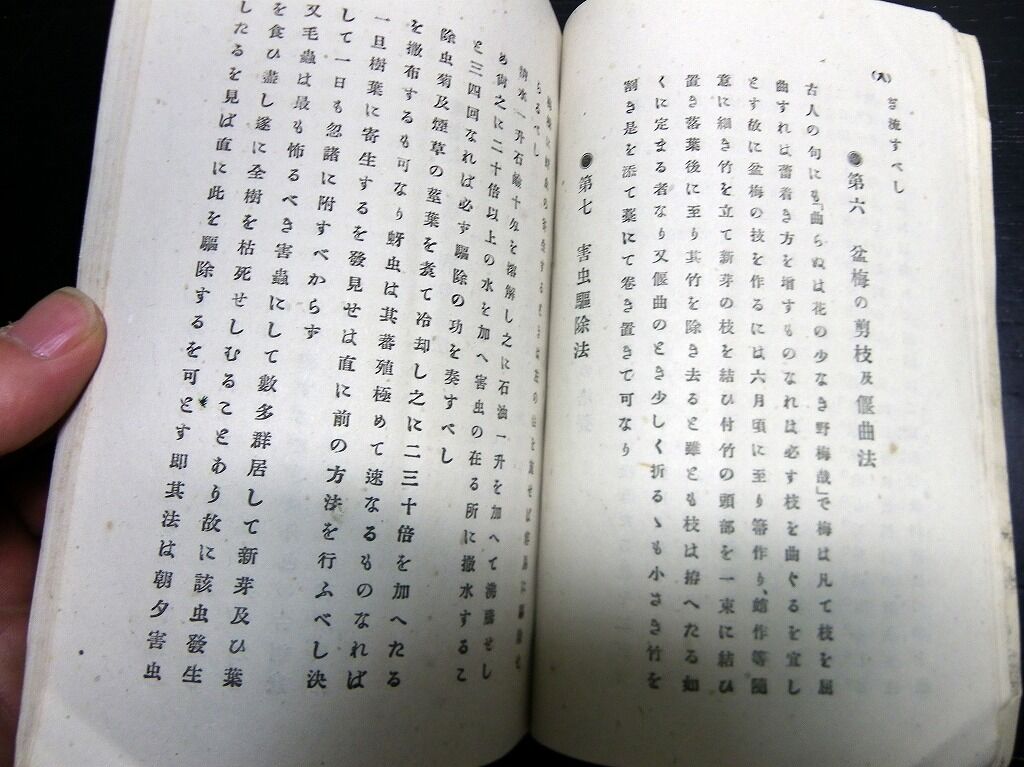 (八)
流すべし
●第六 盆梅の剪枝及偃曲法
古人の句にも「曲らぬは花の少なき野梅哉」で梅は凡て枝を屈
曲すれは蕾着き方を増すものなれは必す枝を曲ぐるを宜し
とす故に盆梅の技を作るには六月頃に至り箒作り、蛸作等隨
意に細き竹を立て新芽の枝を結ひ付竹の頭部を一束に結ひ
置き落葉後に至り其竹を除き去ると雖とも枝は撓へたる如
くに定まる者なり又偃曲のとき少しく折るゝも小さき竹を
割き是を添て藁にて卷き置きて可なり
●第七 害虫驅除法
らるべし
水一升石鹼十匁を溶解し之に石油一升を加へて沸騰せし
め尚之に二十倍以上の水を加へ害虫の在る所に撒水するこ
と三四回なれば必す驅除の功を奏すべし
除虫菊及煙草の莖葉を煮て冷却し之に二三十倍を加へたる
を撒布するも可なり蚜虫は其蕃殖極めて速なるものなれば
一旦樹葉に寄生するを發見せは直に前の方法を行ふべし決
して一日も忽諸に附すべからす
又毛蟲は最も怖るべき害蟲にして數多群居して新芽及ひ葉
を食ひ盡し遂に全樹を枯死せしむることあり故に該虫發生
したるを見ば直に此を驅除するを可とす即其法は朝夕害虫